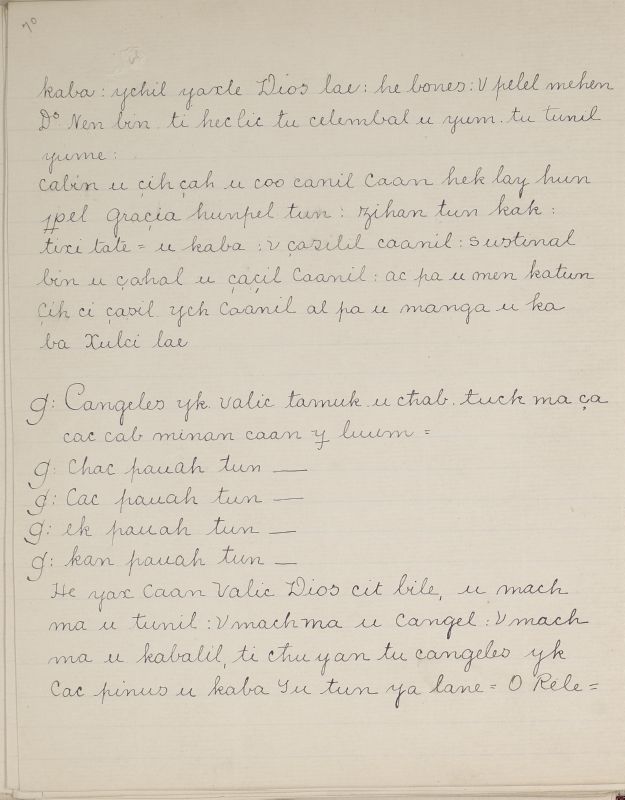 70
kaba : ychil yaxte Dios lae : he bones : V pelel mehen
Ds Nen bin ti heclic tu celembal u yum . tu tunil
yume :
cabin u çihçah u coo canil Caan hek lay hun
ppel graçia hunpel tun : zihan tun kak :
tixi tate = u kaba : v çazilil caanil : sustinal
bin u çahal u çaçil Caanil : ac pa u men katun
çih ci çazil ych Caanil al pa u manga u ka
ba Xulci lae
g: Cangeles yk. Valic tamuk u chab . tuck ma ça
cac cab minan caan y luum =
g: Chac pauah tun —
g: Cac pauah tun —
g: ek pauah tun —
g: kan pauah tun —
He yax Caan Valic Dios cit bile, u mach
ma u tunil : V machma u Cangel : V mach
ma u kabalil, ti chuyan tu cangeles yk
Cac pinus u kaba Yu tun ya lane = O Rele =